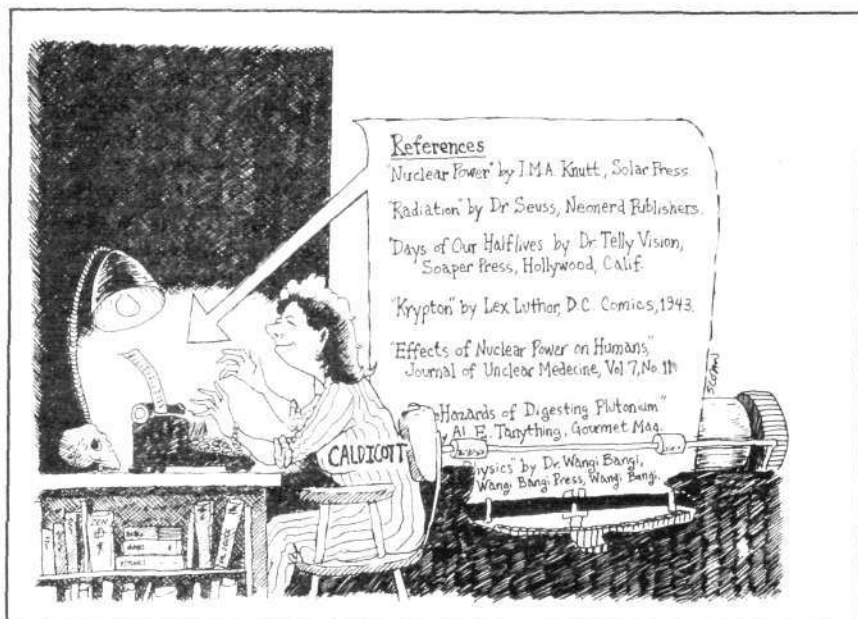 References
"Nuclear Power" by I.M.A. Knutt, Solar Press.
"Radiation" by Dr Seuss, Neonerd Publishers.
"Days of Our Halflives by Dr. Telly Vision,
Soaper Press, Hollywood, Calif.
"Krypton" by Lex Luthor, D.C. Comics, 1943.
"Effects of Nuclear Power on Humans,"
Journal of Unclear Medecine, Vol 7, No. 11
Hazards of Digesting Plutonium"
Al. E. Tanything, Gourmet Mag.
Physics" by Dr. Wangi Bangi,
Wangi Bangi Press, Wangi Bangi.
CALDICOTT
ZEN